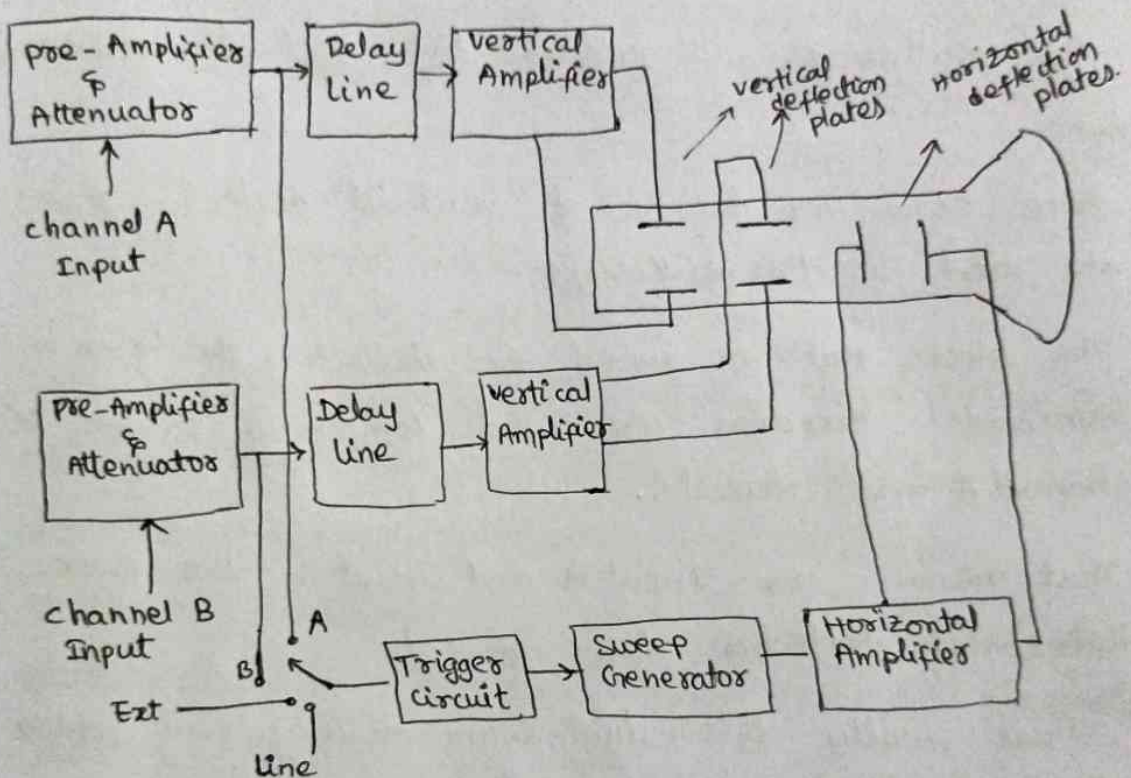 pre-Amplifier
&
Attenuator
Delay
line
vertical
Amplifier
vertical
deflection
plates
Horizontal
deflection
plates.
channel A
Input
pre-Amplifier
&
Attenuator
Delay
line
vertical
Amplifier
channel B
Input
A
B
Ext
line
Trigger
circuit
Sweep
Generator
Horizontal
Amplifier